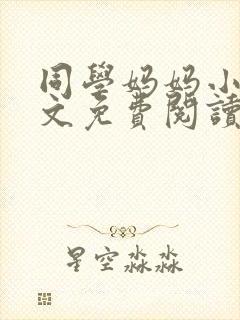 同學妈妈小
文免費閱讀
星空淼淼